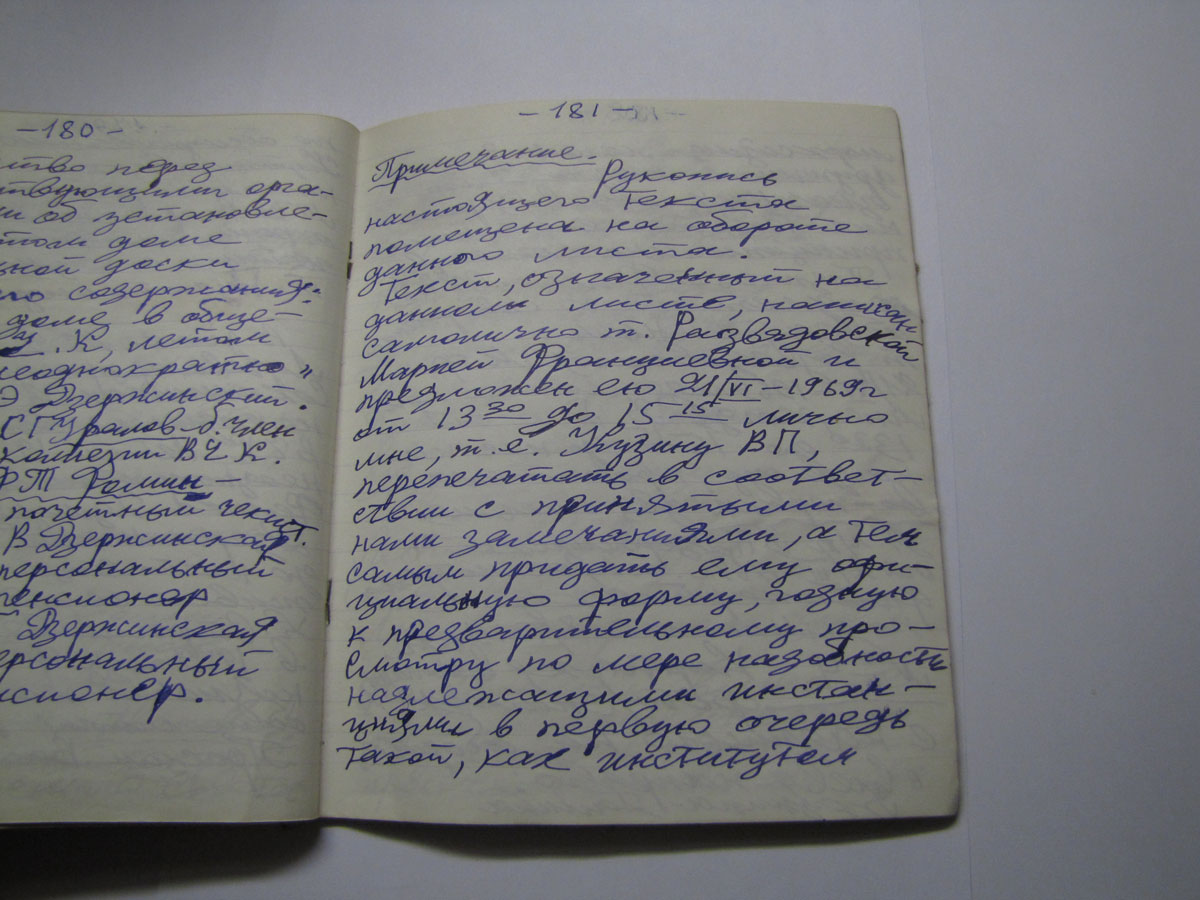 -180-
ство перед
ствующими орга-
ми об установле-
этом доме
ной доски
его содержания:
доме в обще-
К, летом
неоднократно
Э Дзержинский.
СГУралов-б. член
коллегии ВЧК.
ФТ Фомин-
почетный чекист.
В Дзержинская
персональный
пенсионер
Дзержинская
персональный
пенсионер.
-181-
Примечание.
Рукопись
настоящего текста
помещена на обороте
данного листа.
Текст, означенный на
данном листе, написан
самолично т. Развадовской
Марией Францевной и
предложен ею 21/VI-1969г
от 13 30 до 15 15 лично
мне, т.е. Кузину ВП,
перепечатать в соответ-
ствии с принятыми
нами замечаниями, а тем
самым придать ему офи-
циальную форму, годную
к предварительному про-
смотру по мере надобности
надлежащими инстан-
циями в первую очередь
такой, как институтом